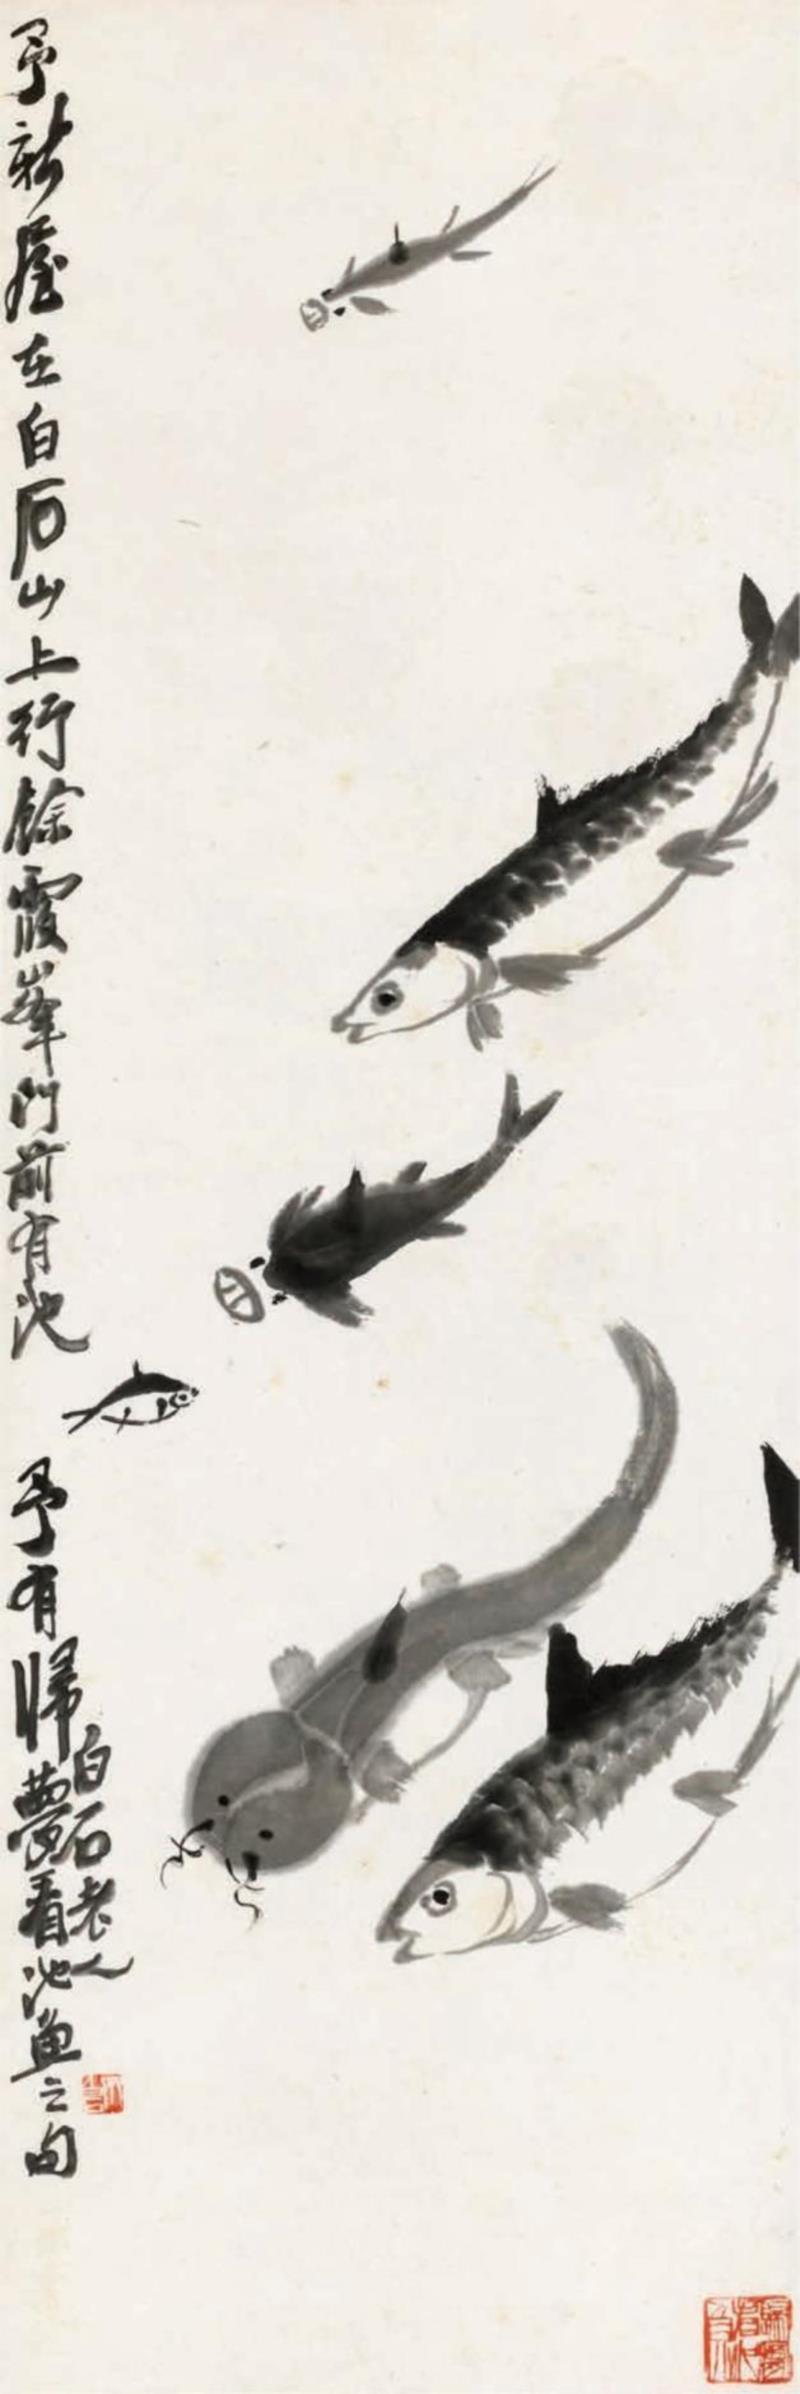 予新屋在白石山上行餘霞峯門前有池
予有歸夢看池魚之句
白石老人
歸夢看池魚